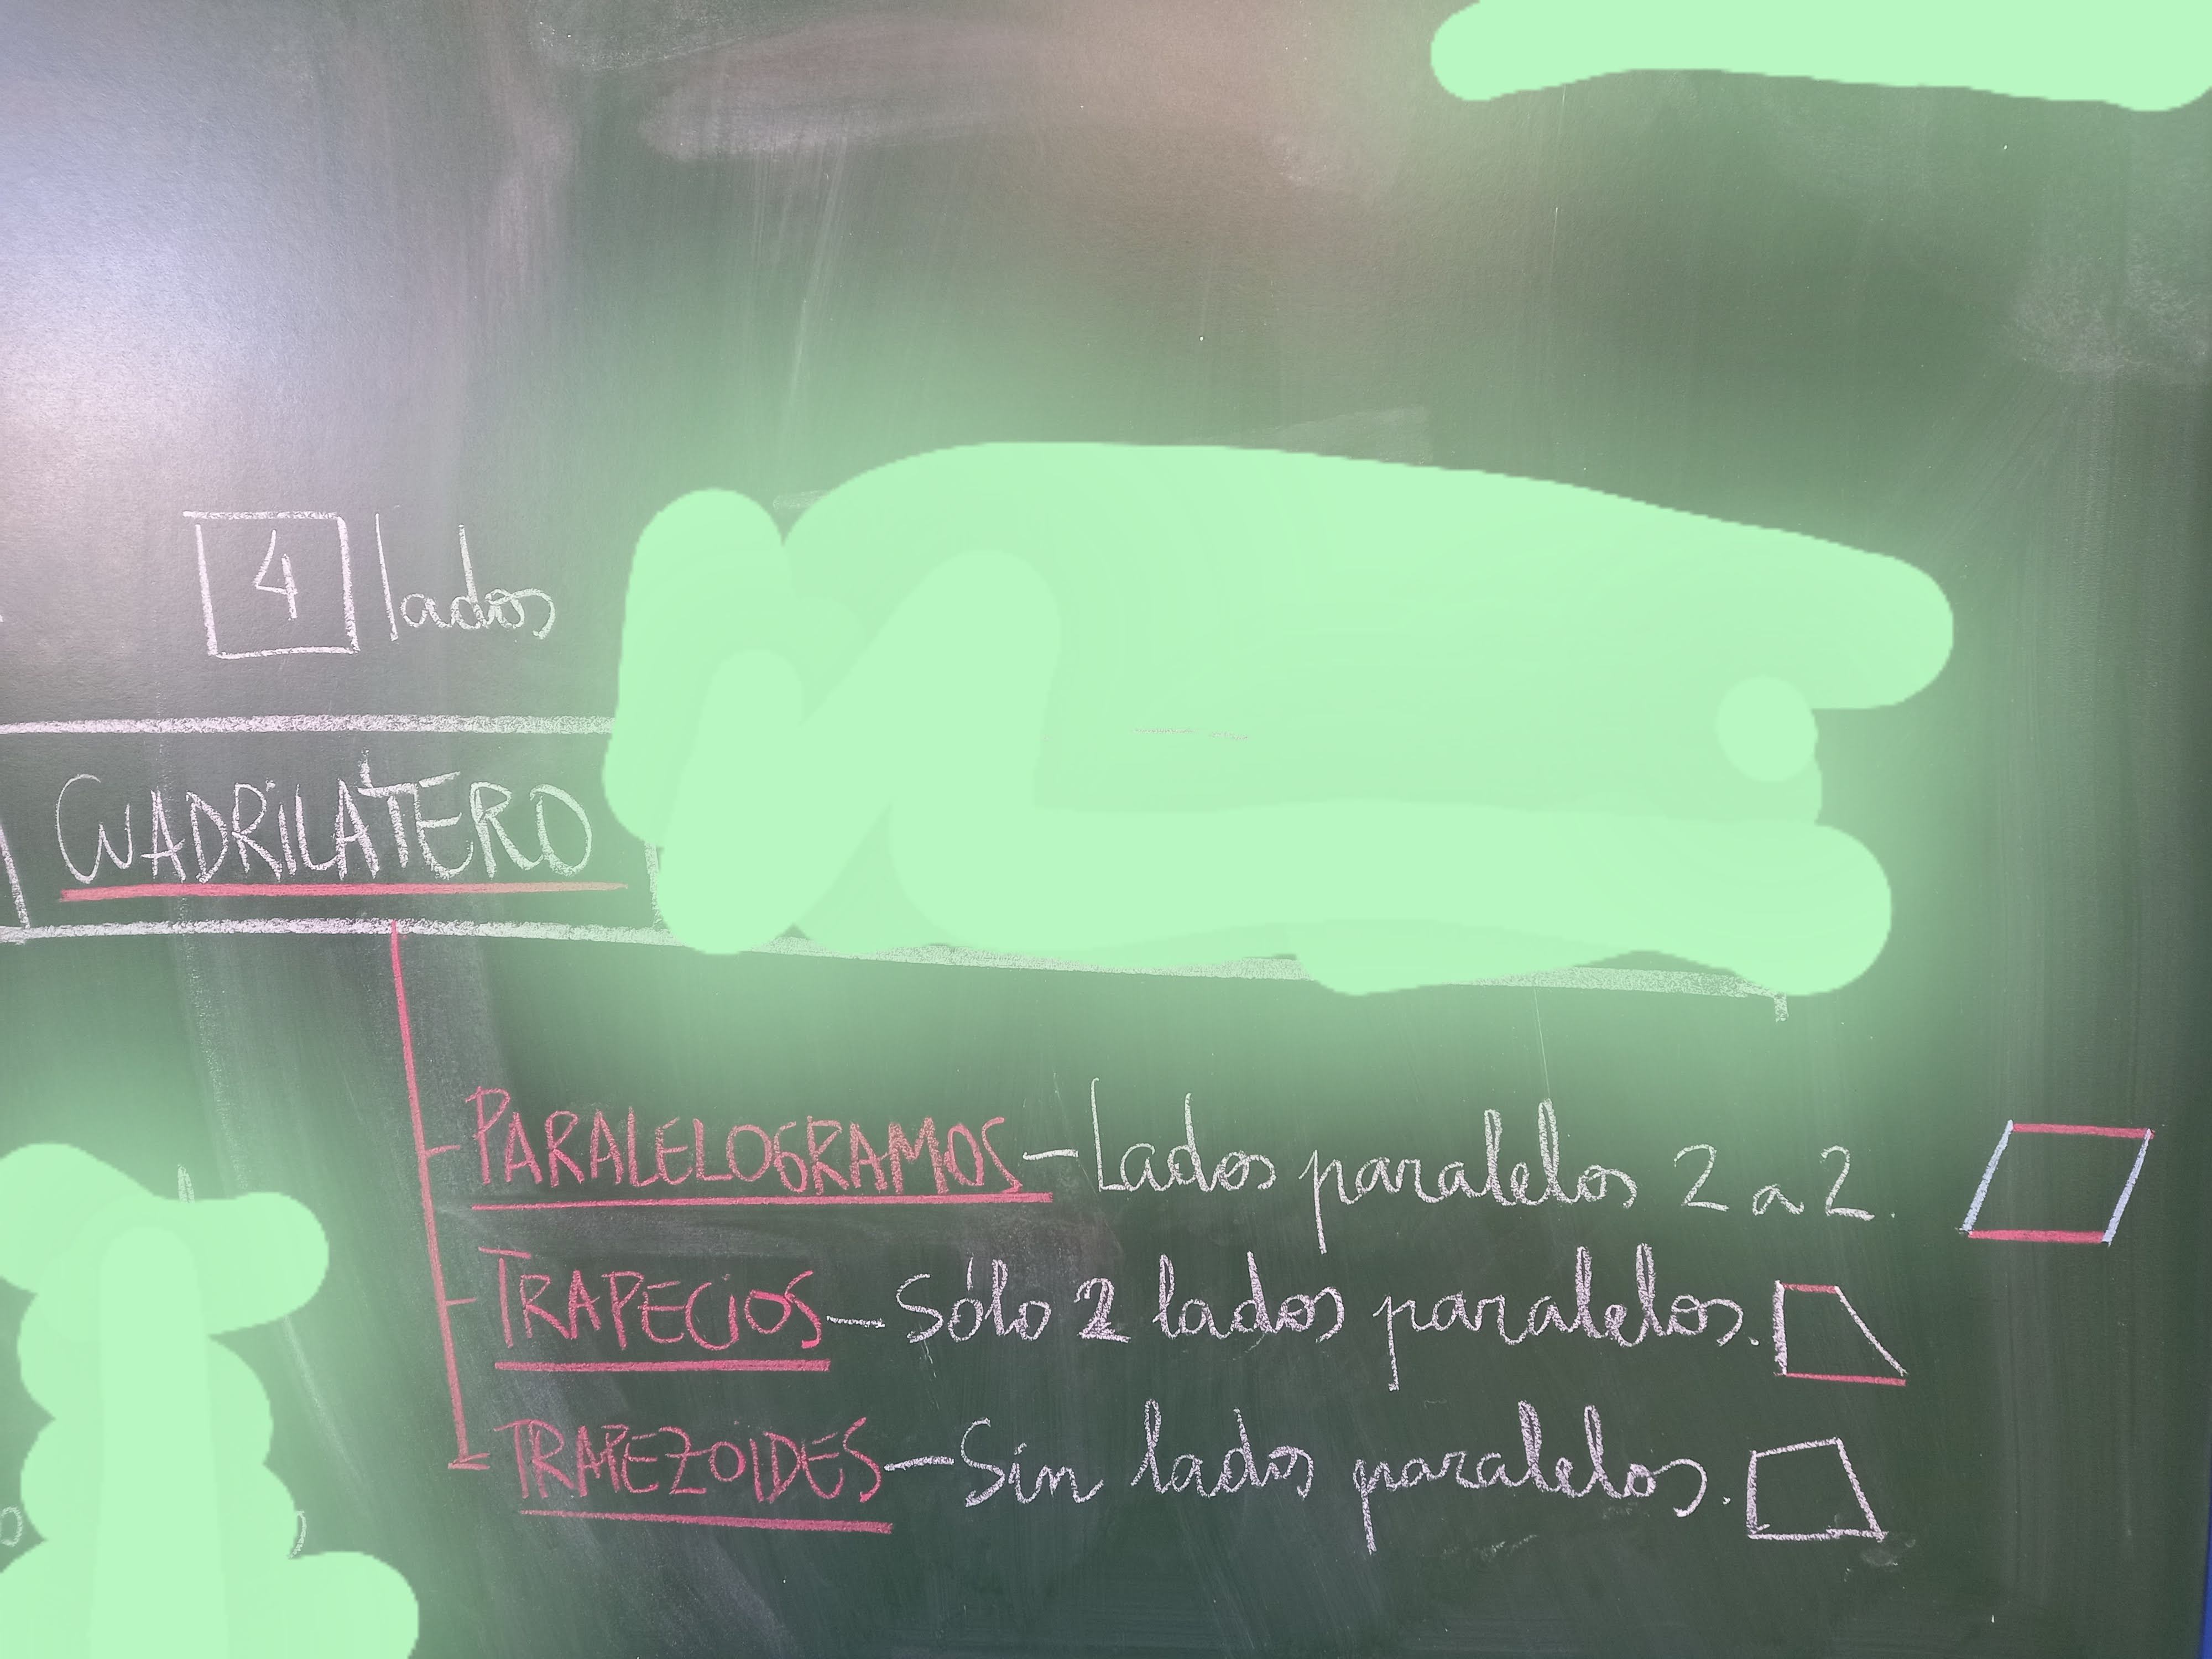 4 lados
CUADRILATERO
PARALELOGRAMOS - Lados paralelos 2 a 2.
TRAPECIOS - Sólo 2 lados paralelos.
TRAPEZOIDES - Sin lados paralelos.